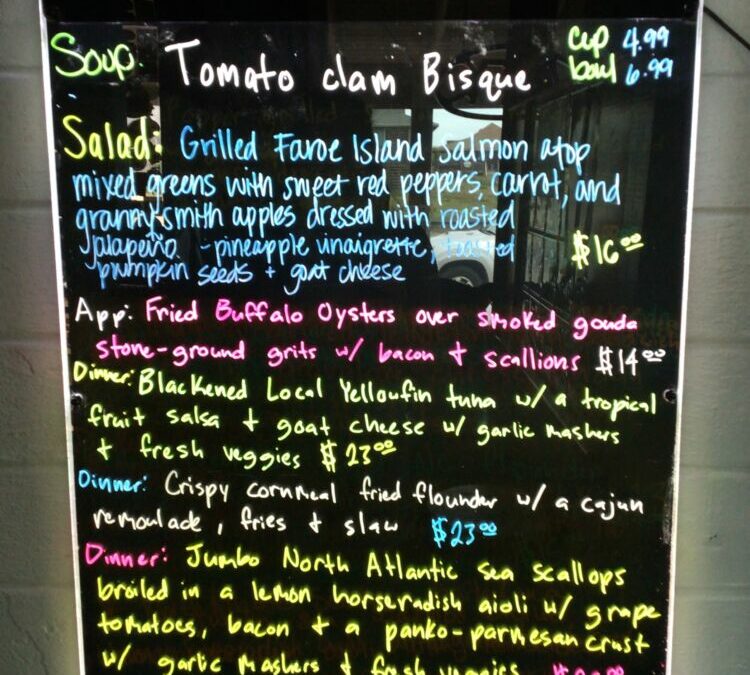 Soup: Tomato clam Bisque cup 4.99
bowl 6.99
Salad: Grilled Faroe Island Salmon atop
mixed greens with sweet red peppers, carrot, and
granny smith apples dressed with roasted
jalapeño - pineapple vinaigrette, toasted
pumpkin seeds + goat cheese $16.00
App: Fried Buffalo Oysters over smoked gouda
stone-ground grits w/ bacon + scallions $14.00
Dinner: Blackened Local Yellowfin tuna w/ a tropical
fruit salsa + goat cheese w/ garlic mashers
+ fresh veggies $23.00
Dinner: Crispy cornmeal fried flounder w/ a cajun
remoulade, fries + slaw $23.00
Dinner: Jumbo North Atlantic sea scallops
broiled in a lemon horseradish aioli w/ grape
tomatoes, bacon + a panko-parmesan crust
w/ garlic mashers + fresh veggies